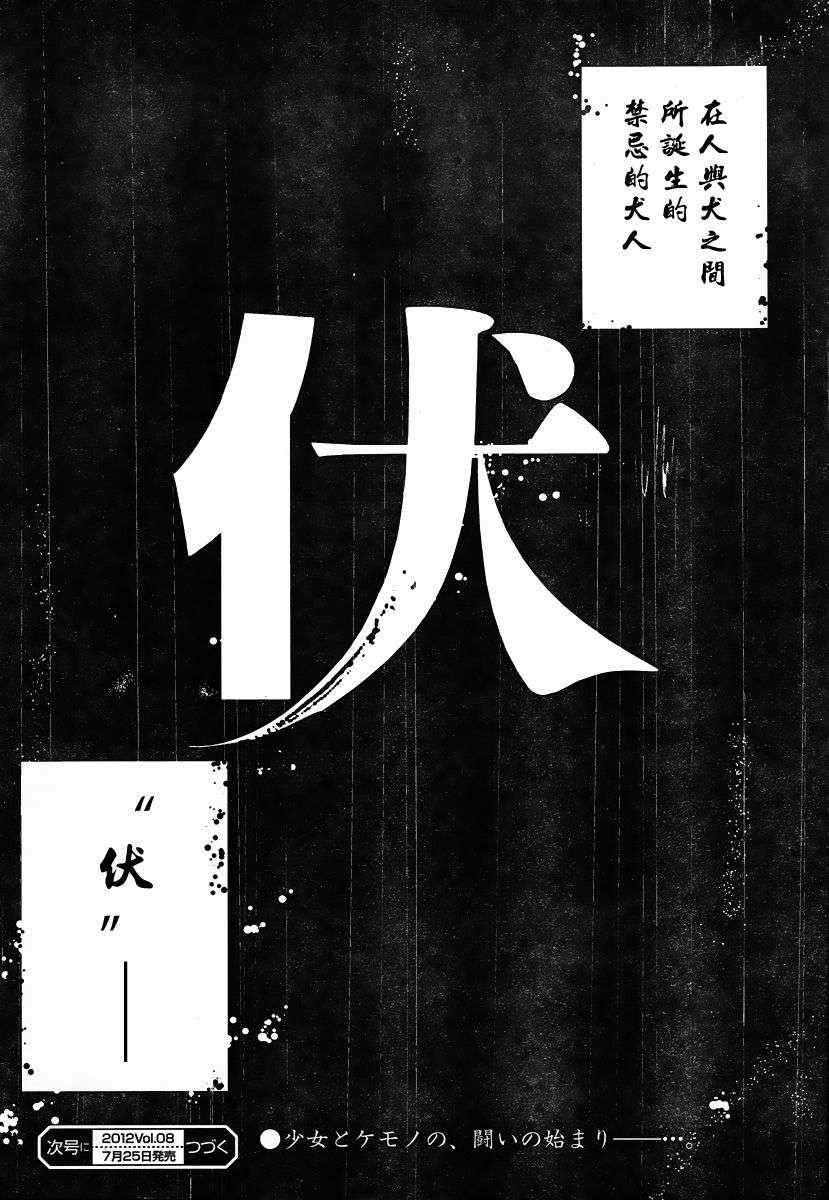 在人與犬之間
所誕生的
禁忌的犬人
伏
“伏”——
次号に
2012Vol.08
7月25日発売
つづく
●少女とケモノの、闘いの始まり——…。